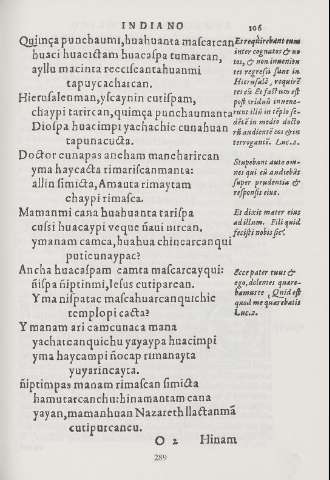 INDIANO
106
Quimça punchaumi, huahuanta mascarcan
huaci huacictam huacaspa tumarcan,
ayllu macinta recciscantahuanmi
tapuycacharcan.
Hierusalenman, yscaynin cutispam,
chaypi tatircan, quimça punchaumanta
Diospa huacimpi yachachic cunahuan
tapunacucta.
Doctor cunapas ancham mancharircan
yma haycacta rimariscanmanta:
allin simicta, Amauta rimaytam
chaypi rimasca.
Mamanmi cana huahuanta tarispa
cussi huacaypi veque ñaui nircan.
ymanam camca, huahua chincarcanqui
puticunaypac?
Ancha huacaspam camta mascarcayqui:
ñispa ñiptinmi, Iesus cutiparcan.
Yma nispatac mascahuarcanquichic
templopi cacta?
Ymanam ari camcunaca mana
yacharcanquichu yayaypa huacimpi
yma haycampi ñocap rimanayta
yuyarincayta.
ñiptimpas manam rimascan simicta
hamutarcanchu: hinamantam cana
yayan, mamanhuan Nazareth llactanmã
cutipurcancu.
O 2 Hinam
Et requirebant eum
inter cognatos & no
tos, & non inuenien
tes regressi sunt in
Hierusalẽ, requirẽ
tes eũ. Et factum est
post triduũ inuene-
runt illũ in tẽplo se-
dẽtẽ in medio docto
rũ audientẽ eos & in
terrogantẽ. Luc. 2.
Stupebant aute om-
nes qui eũ audiebãt
super prudentia &
responsis eius.
Et dixit mater eius
ad illum. Fili quid
fecisti nobis sic?
Ecce pater tuus &
ego, dolentes quare-
bamus te, Quid est
quod me quarebatis
Luc. 2.
289